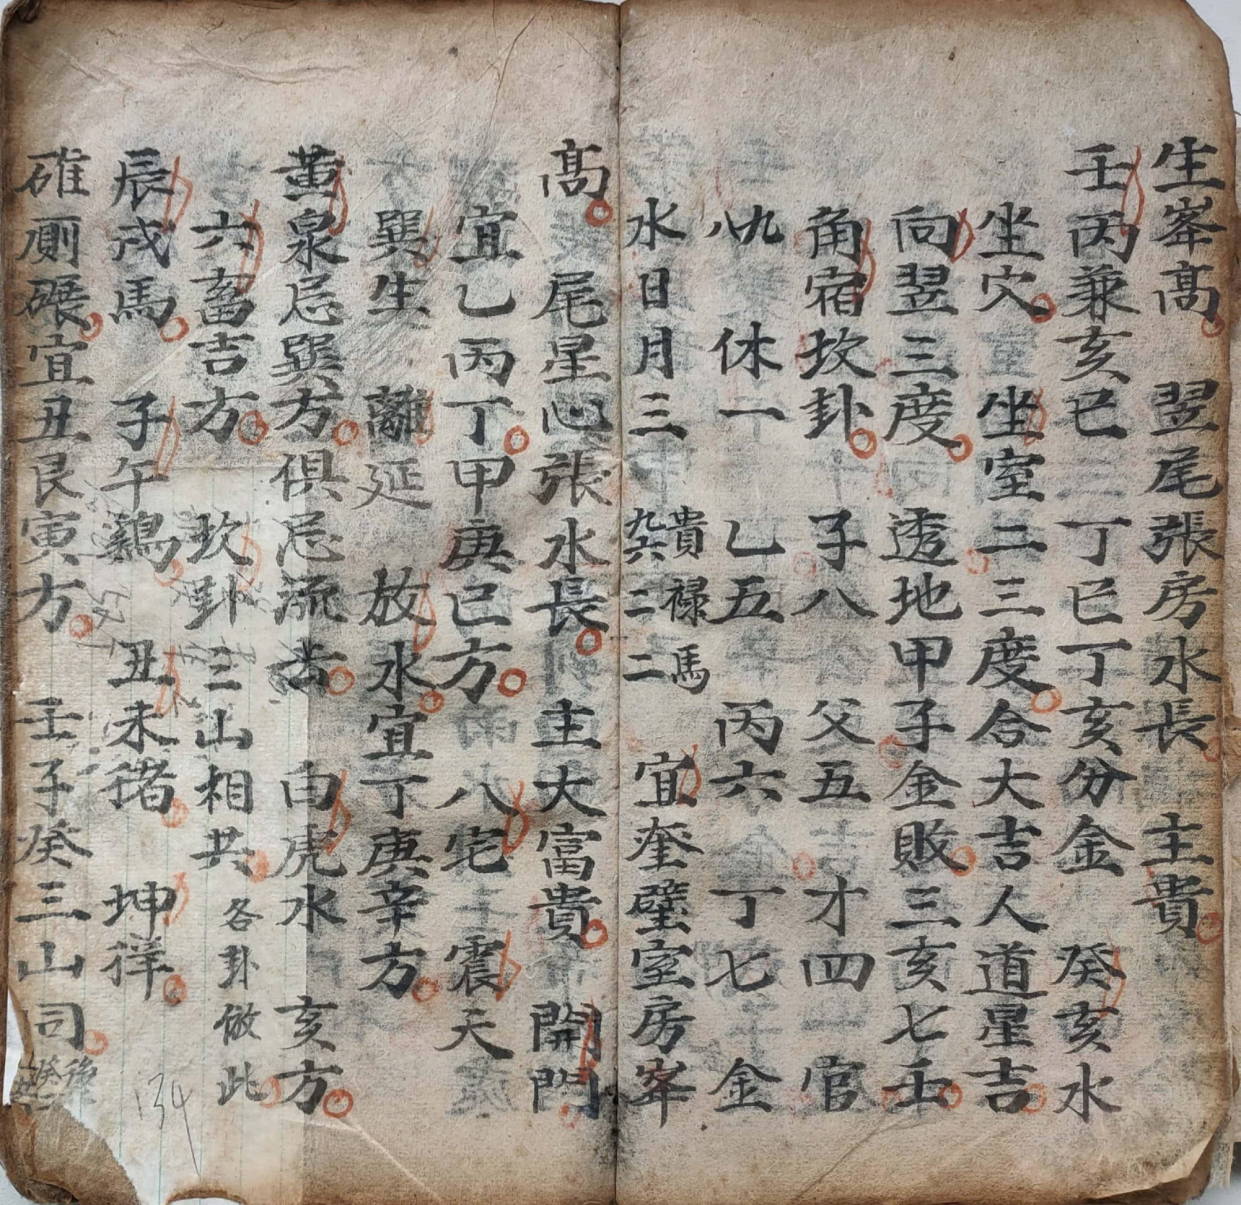 生峯髙 翌尾張房水長 主貴
壬丙兼亥巳 丁巳丁亥分金 癸亥水
坐穴 坐室二三度合大吉人道星吉
向翌三度 透地甲子金敗三亥七壬
角宿坎卦 子八 父五 才四 官
九八 休一 乙五 丙六 丁七 金
水日月三 貴禄馬 二二 宜奎壁室房峯
髙 尾星心張水長 主大富貴 開門
宜乙丙丁甲庚巳方 八宅 震天
巽生 離延 放水宜丁庚辛方
黄泉忌巽方俱忌流去 白虎水 亥方
六畜吉方 坎卦三山相共 各卦倣此
辰戌馬 子午鷄 丑未猪 坤徉
碓厠碾宜丑艮寅方 壬子癸三山司 後
134